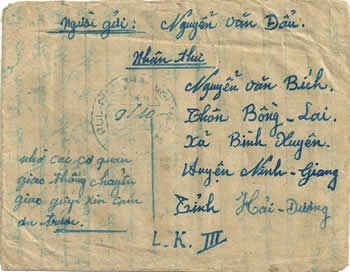 Người gửi: Nguyễn Văn Dẩu.
Nhân thư
Nguyễn Văn Bích.
Thôn Bồng-Lai.
Xã Bình Xuyên.
Huyện Ninh-Giang
Tỉnh Hải-Dương
L.K. III
nhờ các cơ quan
giao thông chuyển
giao giúp xin cám
ơn trước.